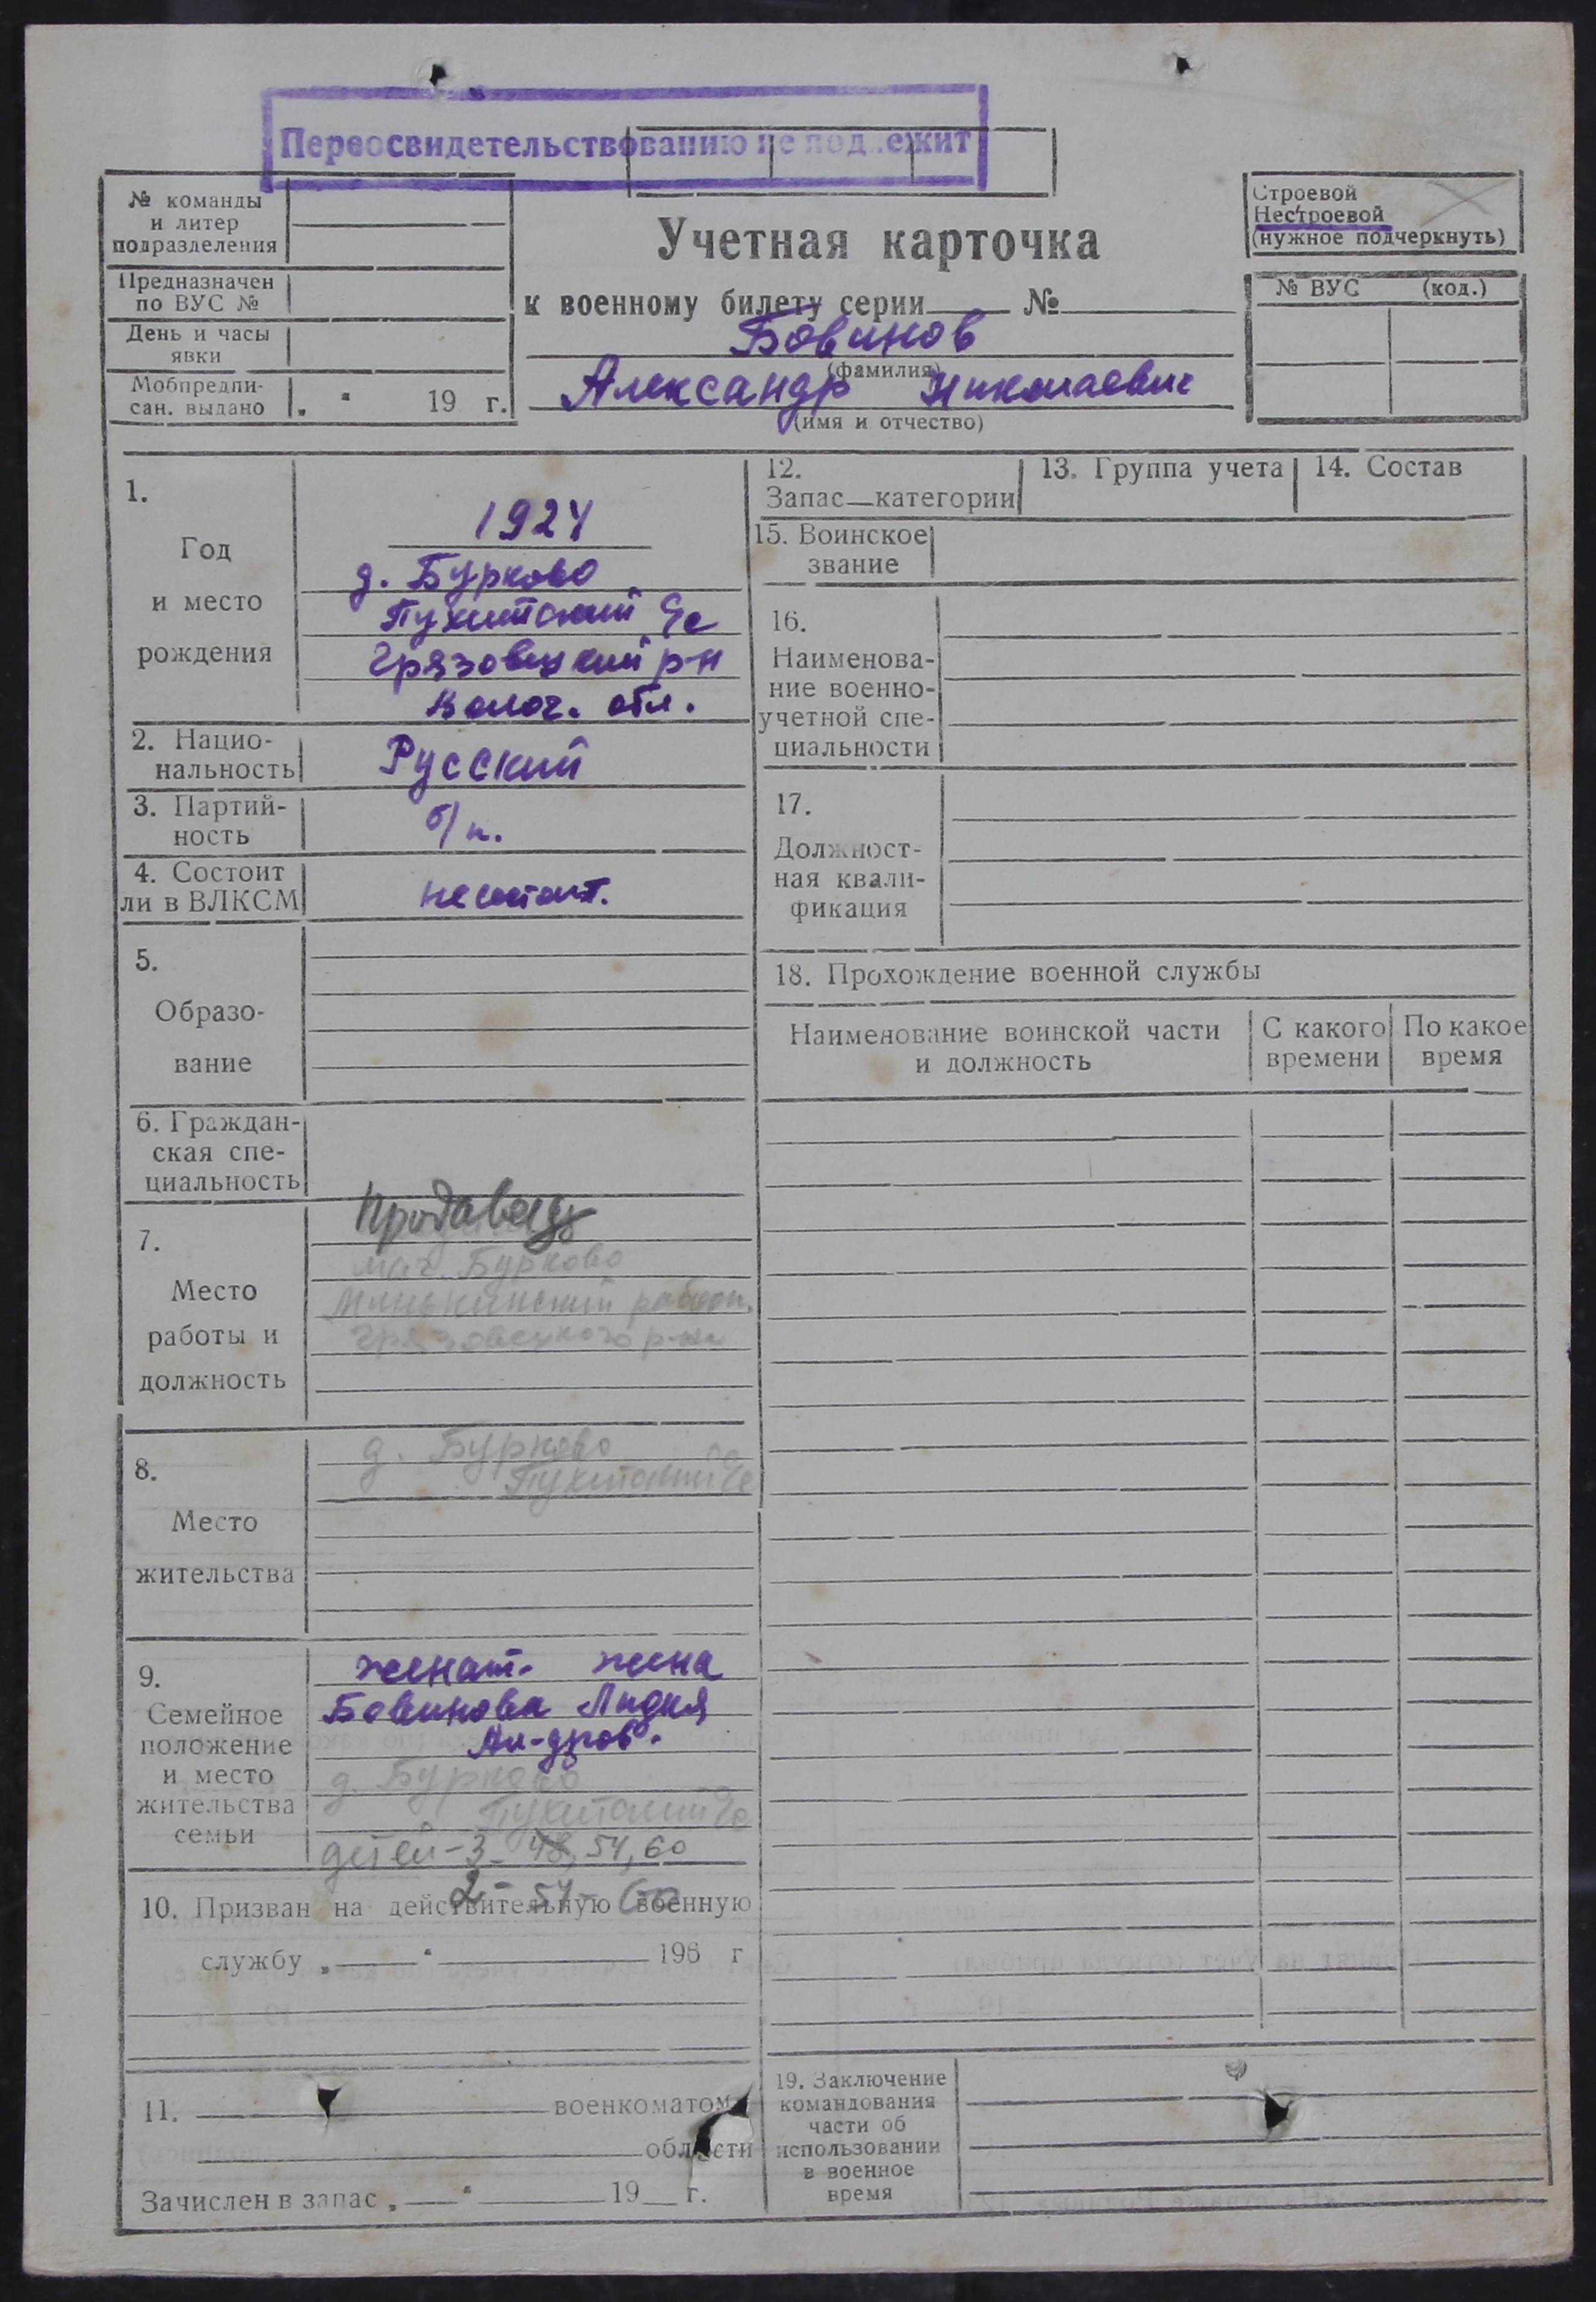 Переосвидетельствованию не подлежит
№ команды
и литер
подразделения
Предназначен
по ВУС №
День и часы
явки
Мобпредпи-
сан. выдано „ “ 19 г.
Учетная карточка
к военному билету серии №
Бовинов
(фамилия)
Александр Николаевич
(имя и отчество)
Строевой
Нестроевой
(нужное подчеркнуть)
№ ВУС (код.)
1.
Год
и место
рождения
1924
д. Бурково
Пухитский с/с
Грязовецкий р-н
Волог. обл.
2. Нацио-
нальность
Русский
3. Партий-
ность
б/п.
4. Состоит
ли в ВЛКСМ
не состоит.
5.
Образо-
вание
6. Граждан-
ская спе-
циальность
7.
Место
работы и
должность
Продавец
маг. Бурково
Минькинский рабкоп.
Грязовецкого р-на
8.
Место
жительства
д. Бурково
Пухитский с/с
9.
Семейное
положение
и место
жительства
семьи
женат. жена
Бовинова Лидия
Ал-дров.
д. Бурково
Пухитский с/с
детей-3- 48, 54, 60
2- 54- 60
10. Призван на действительную военную
службу „ “ 196 г
11. военкоматом
области
Зачислен в запас „ “ 19 г.
12.
Запас—категории
13. Группа учета
14. Состав
15. Воинское
звание
16.
Наименова-
ние военно-
учетной спе-
циальности
17.
Должност-
ная квали-
фикация
18. Прохождение военной службы
Наименование воинской части
и должность
С какого
времени
По какое
время
19. Заключение
командования
части об
использовании
в военное
время